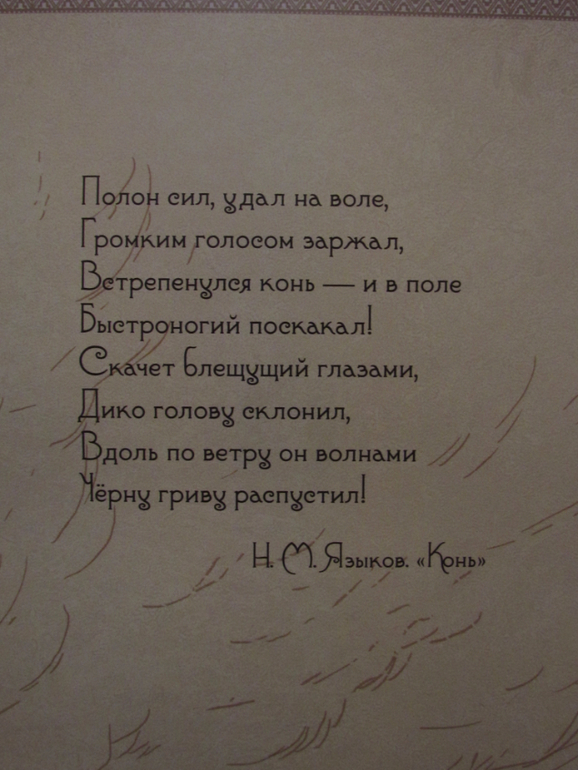 Полон сил, удал на воле,
Громким голосом заржал,
Встрепенулся конь — и в поле
Быстроногий поскакал!
Скачет блещущий глазами,
Дико голову склонил,
Вдоль по ветру он волнами
Чёрну гриву распустил!
Н. М. Языков. «Конь»